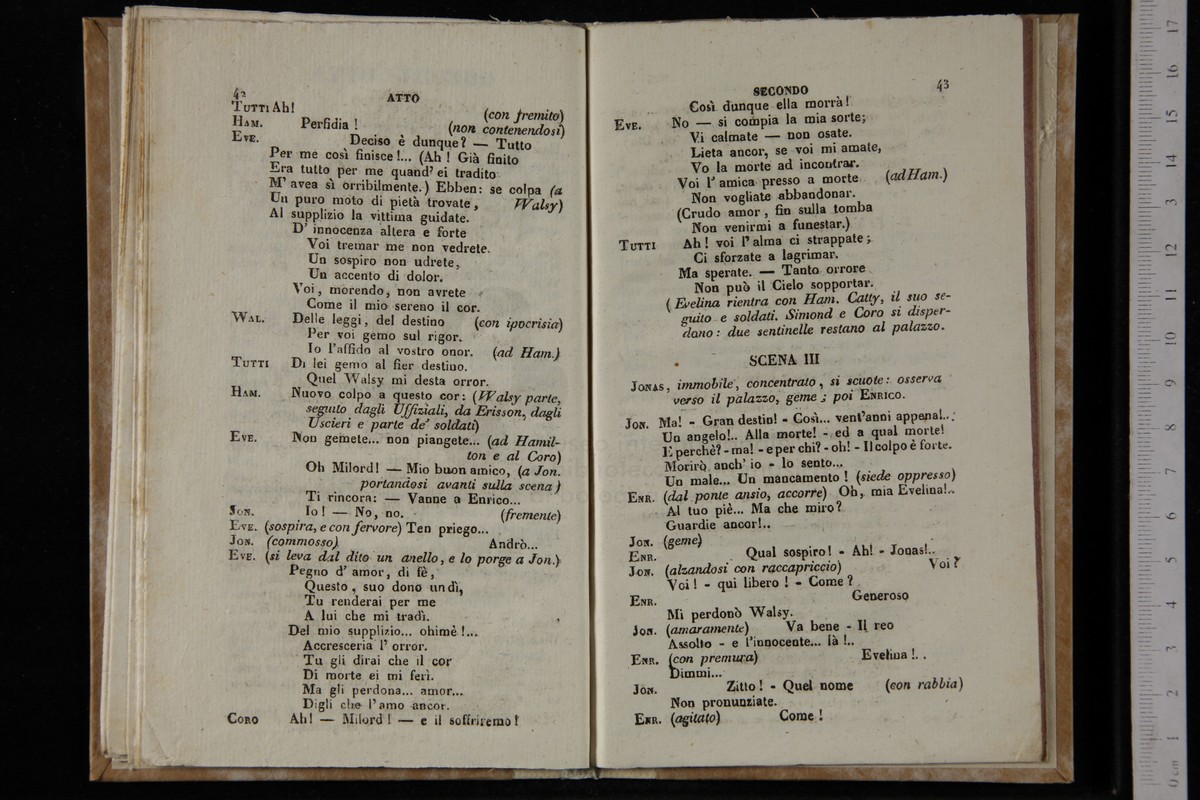 42
ATTO
TUTTI Ah! (con fremito)
HAM. Perfidia! (non contenendosi)
EVE. Deciso è dunque? — Tutto
Per me così finisce!... (Ah! Già finito
Era tutto per me quand' ei tradito
M' avea sì orribilmente.) Ebben: se colpa (a
Un puro moto di pietà trovate, Walsy)
Al supplizio la vittima guidate.
D' innocenza altera e forte
Voi tremar me non vedrete.
Un sospiro non udrete,
Un accento di dolor.
Voi, morendo, non avrete
Come il mio sereno il cor.
WAL. Delle leggi, del destino (con ipocrisia)
Per voi gemo sul rigor.
Io l'affido al vostro onor. (ad Ham.)
TUTTI Di lei gemo al fier destino.
Quel Walsy mi desta orror.
HAM. Nuovo colpo a questo cor: (Walsy parte,
seguito dagli Uffiziali, da Erisson, dagli
Uscieri e parte de' soldati)
EVE. Non gemete... non piangete... (ad Hamil-
ton e al Coro)
Oh Milord! — Mio buon amico, (a Jon.
portandosi avanti sulla scena)
Ti rincora: — Vanne a Enrico...
JON. Io! — No, no. (fremente)
EVE. (sospira, e con fervore) Ten priego...
JON. (commosso) Andrò...
EVE. (si leva dal dito un anello, e lo porge a Jon.)
Pegno d' amor, di fè,
Questo, suo dono un dì,
Tu renderai per me
A lui che mi tradì.
Del mio supplizio... ohimè!...
Accresceria l' orror.
Tu gli dirai che il cor
Di morte ei mi ferì.
Ma gli perdona... amor...
Digli che l'amo ancor.
CORO Ah! — Milord! — e il soffriremo!
SECONDO
43
Così dunque ella morrà!
EVE. No — si compia la mia sorte;
Vi calmate — non osate.
Lieta ancor, se voi mi amate,
Vo la morte ad incontrar.
Voi l' amica presso a morte (ad Ham.)
Non vogliate abbandonar.
(Crudo amor, fin sulla tomba
Non venirmi a funestar.)
TUTTI Ah! voi l' alma ci strappate;
Ci sforzate a lagrimar.
Ma sperate. — Tanto orrore
Non può il Cielo sopportar.
(Evelina rientra con Ham. Catty, il suo se-
guito e soldati. Simond e Coro si disper-
dono: due sentinelle restano al palazzo.
SCENA III
JONAS, immobile, concentrato, si scuote: osserva
verso il palazzo, geme; poi ENRICO.
JON. Ma! - Gran destin! - Così... vent'anni appena!..
Un angelo!.. Alla morte! - ed a qual morte!
E perchè? - ma! - e per chi? - oh! - Il colpo è forte.
Morirò anch' io - lo sento...
Un male... Un mancamento! (siede oppresso)
ENR. (dal ponte ansio, accorre) Oh, mia Evelina!..
Al tuo piè... Ma che miro?
Guardie ancor!..
JON. (geme)
ENR. Qual sospiro! - Ah! - Jonas!..
JON. (alzandosi con raccapriccio) Voi?
Voi! - qui libero! - Come?
ENR. Generoso
Mi perdonò Walsy.
JON. (amaramente) Va bene - Il reo
Assolto - e l'innocente... là!..
ENR. (con premura) Evelina!..
Dimmi...
JON. Zitto! - Quel nome (con rabbia)
Non pronunziate.
ENR. (agitato) Come!